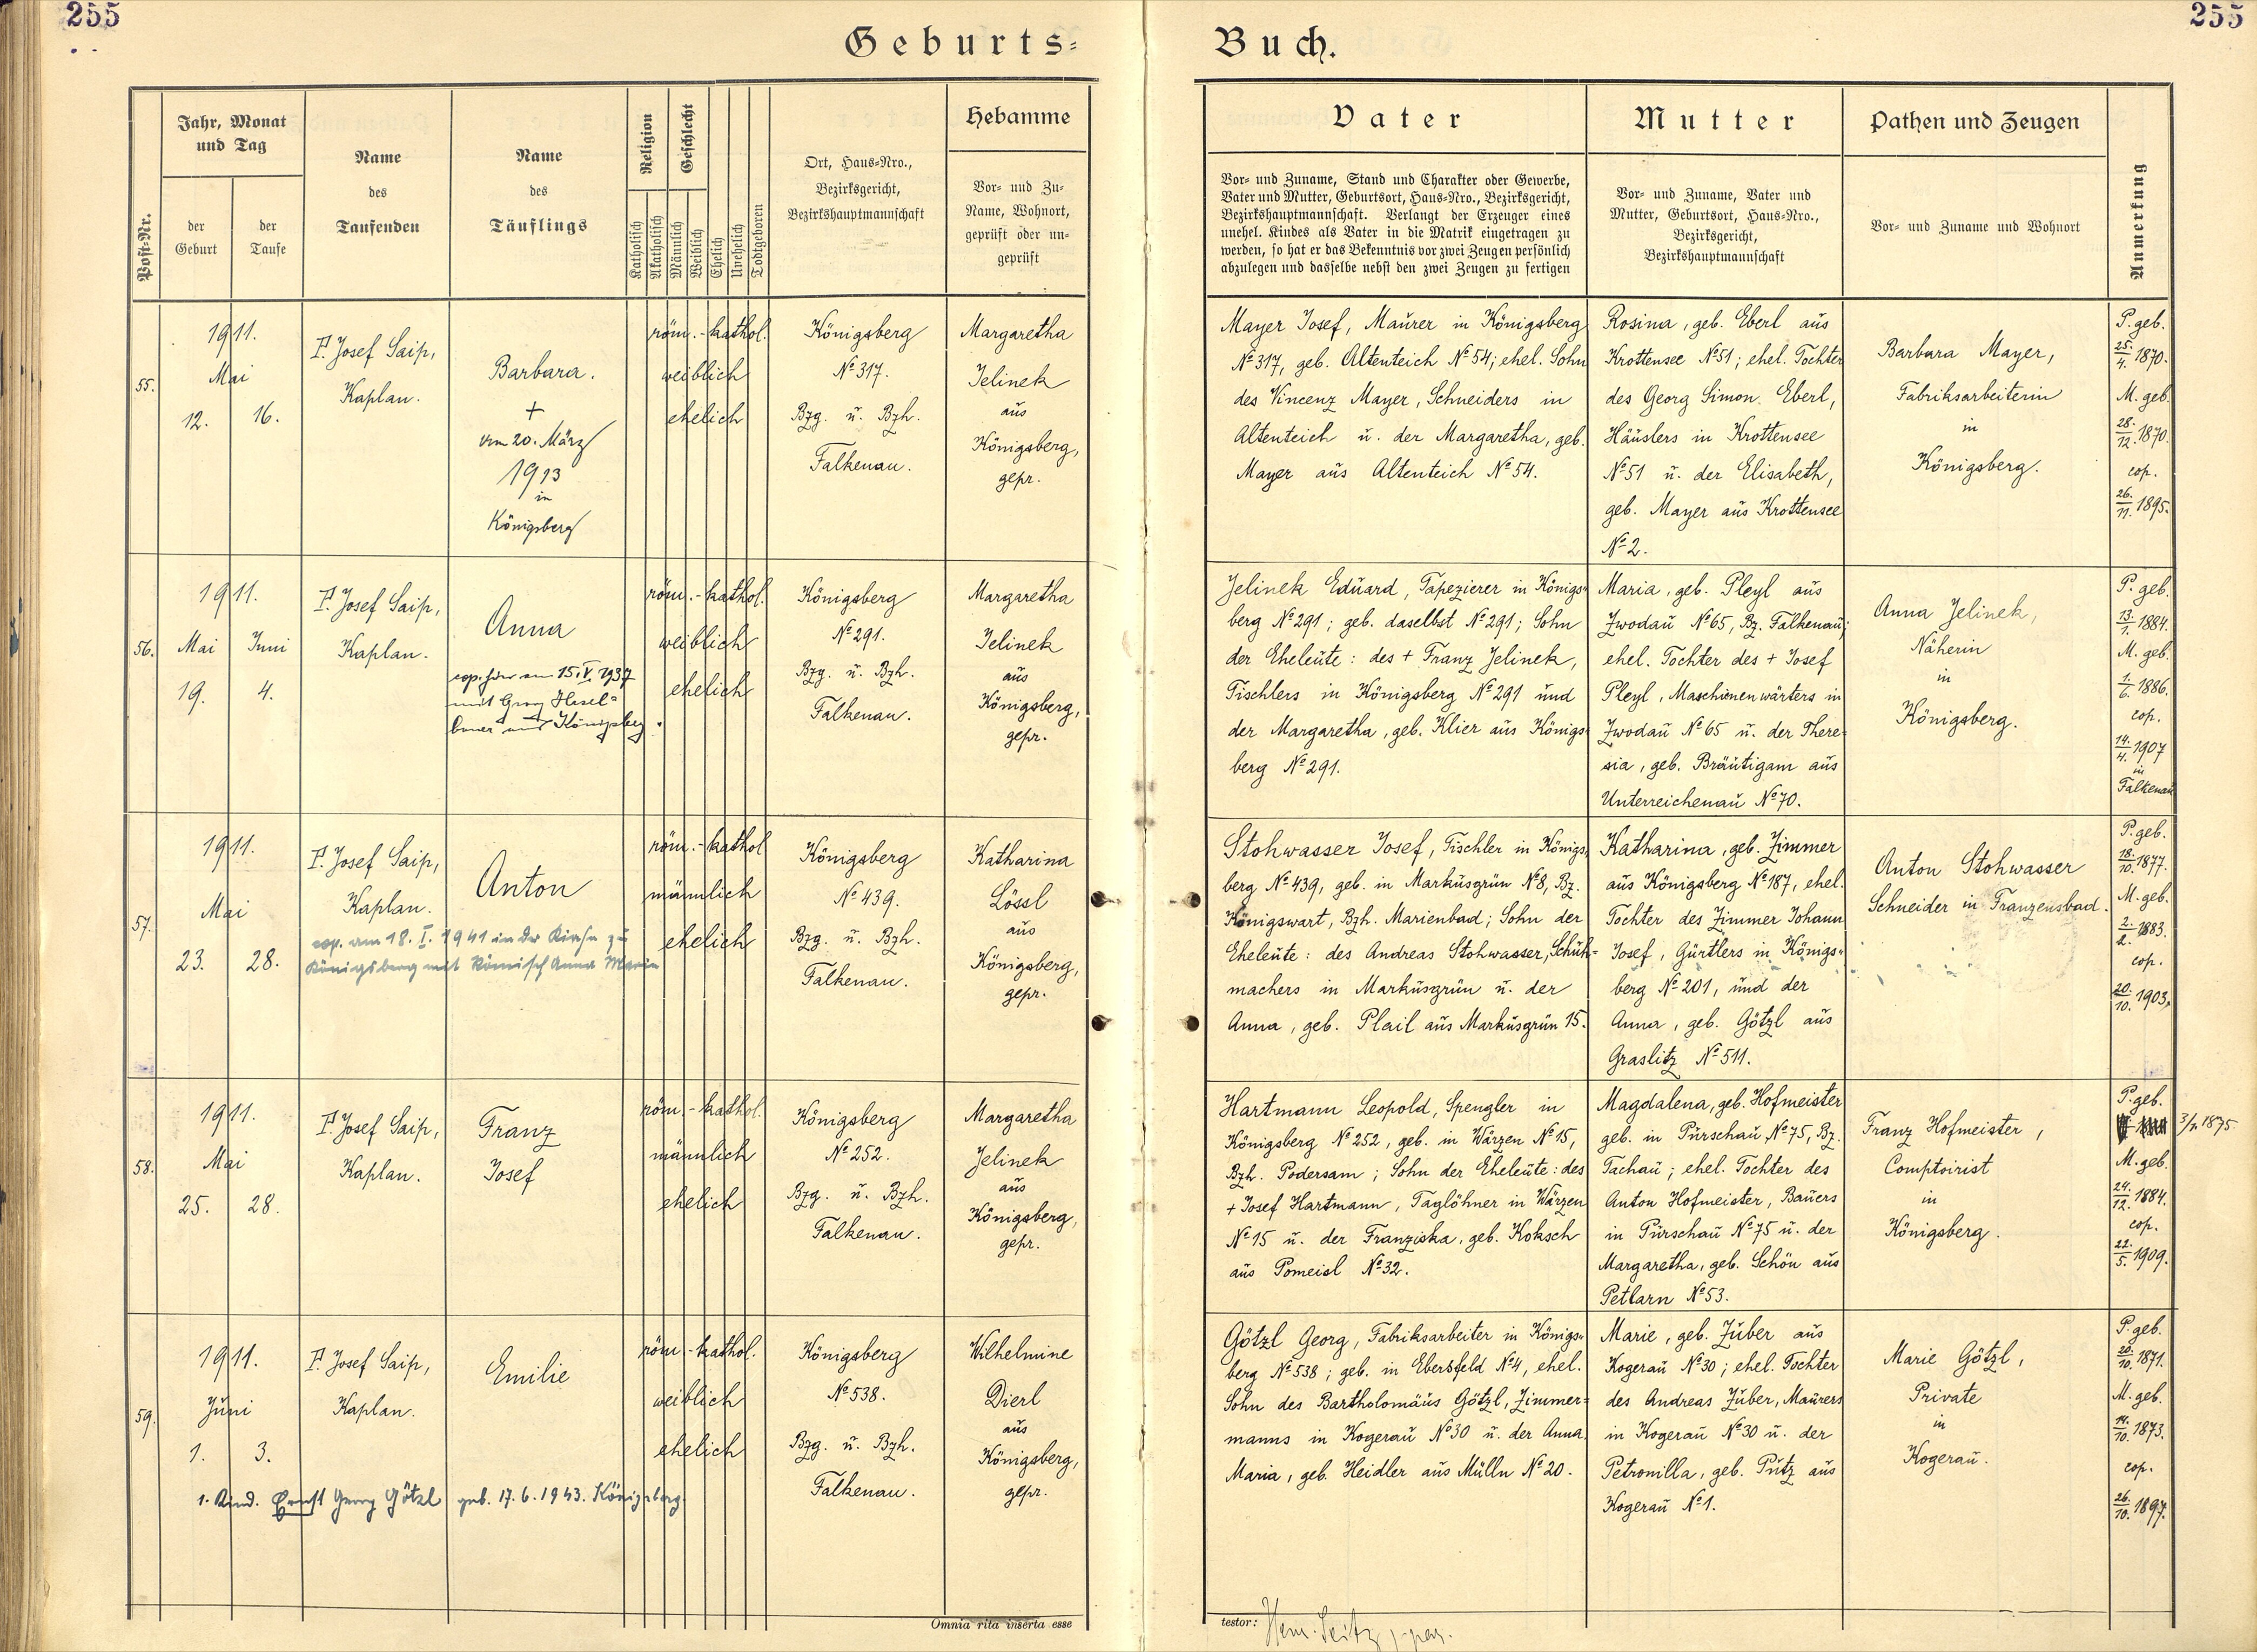 255
255
Geburts-
Buch.
Post-Nr.
Jahr, Monat
und Tag
der
Geburt
der
Taufe
Name
des
Taufenden
Name
des
Täuflings
Religion
Geschlecht
Katholisch
Akatholisch
Männlich
Weiblich
Ehelich
Unehelich
Todtgeboren
Ort, Haus-Nro.,
Bezirksgericht,
Bezirkshauptmannschaft
Hebamme
Vor- und Zu-
Name, Wohnort,
geprüft oder un-
geprüft
Vater
Vor- und Zuname, Stand und Charakter oder Gewerbe,
Vater und Mutter, Geburtsort, Haus-Nro., Bezirksgericht,
Bezirkshauptmannschaft. Verlangt der Erzeuger eines
unehel. Kindes als Vater in die Matrik eingetragen zu
werden, so hat er das Bekenntnis vor zwei Zeugen persönlich
abzulegen und dasselbe nebst den zwei Zeugen zu fertigen
Mutter
Vor- und Zuname, Vater und
Mutter, Geburtsort, Haus-Nro.,
Bezirksgericht,
Bezirkshauptmannschaft
Pathen und Zeugen
Vor- und Zuname und Wohnort
Anmerkung
55.
1911.
Mai
12. 16.
P. Josef Saip,
Kaplan.
Barbara.
+
am 20. März
1913
in
Königsberg
röm.-kathol.
weiblich
ehelich
Königsberg
№ 317.
Bzg. u. Bzh.
Falkenau.
Margaretha
Jelinek
aus
Königsberg,
gepr.
Mayer Josef, Maurer in Königsberg
№ 317, geb. Altenteich № 54; ehel. Sohn
des Vincenz Mayer, Schneiders in
Altenteich u. der Margaretha, geb.
Mayer aus Altenteich № 54.
Rosina, geb. Eberl aus
Krottensee № 51; ehel. Tochter
des Georg Simon Eberl,
Häuslers in Krottensee
№ 51 u. der Elisabeth,
geb. Mayer aus Krottensee
№ 2.
Barbara Mayer,
Fabriksarbeiterin
in
Königsberg.
P. geb.
25./4. 1870.
M. geb.
28./12. 1870.
cop.
26./11. 1895.
56.
1911.
Mai Juni
19. 4.
P. Josef Saip,
Kaplan.
Anna
cop. hier am 15. V. 1937
mit Georg Hasel-
bauer aus Königsberg.
röm.-kathol.
weiblich
ehelich
Königsberg
№ 291.
Bzg. u. Bzh.
Falkenau.
Margaretha
Jelinek
aus
Königsberg,
gepr.
Jelinek Eduard, Tapezierer in Königs-
berg № 291; geb. daselbst № 291; Sohn
der Eheleute: des + Franz Jelinek,
Tischlers in Königsberg № 291 und
der Margaretha, geb. Klier aus Königs-
berg № 291.
Maria, geb. Pleyl aus
Zwodau № 65, Bz. Falkenau;
ehel. Tochter des + Josef
Pleyl, Maschinenwärters in
Zwodau № 65 u. der There-
sia, geb. Bräutigam aus
Unterreichenau № 70.
Anna Jelinek,
Näherin
in
Königsberg.
P. geb.
13./1. 1884.
M. geb.
1./6. 1886.
cop.
14./4. 1907
in
Falkenau
57.
1911.
Mai
23. 28.
P. Josef Saip,
Kaplan.
Anton
cop. am 18. I. 1941 in der Kirche zu
Königsberg mit Römisch Anna Maria
röm.-kathol
männlich
ehelich
Königsberg
№ 439.
Bzg. u. Bzh.
Falkenau.
Katharina
Lössl
aus
Königsberg,
gepr.
Stohwasser Josef, Tischler in Königs-
berg № 439, geb. in Markusgrün № 8, Bz.
Königswart, Bzh. Marienbad; Sohn der
Eheleute: des Andreas Stohwasser, Schuh-
machers in Markusgrün u. der
Anna, geb. Plail aus Markusgrün 15.
Katharina, geb. Zimmer
aus Königsberg № 187, ehel.
Tochter des Zimmer Johann
Josef, Gürtlers in Königs-
berg № 201, und der
Anna, geb. Götzl aus
Graslitz № 511.
Anton Stohwasser
Schneider in Franzensbad.
P. geb.
18./10. 1877.
M. geb.
2./2. 1883.
cop.
20./10. 1903.
58.
1911.
Mai
25. 28.
P. Josef Saip,
Kaplan.
Franz
Josef
röm.-kathol.
männlich
ehelich
Königsberg
№ 252.
Bzg. u. Bzh.
Falkenau.
Margaretha
Jelinek
aus
Königsberg,
gepr.
Hartmann Leopold, Spengler in
Königsberg № 252, geb. in Wärzen № 15,
Bzh. Podersam; Sohn der Eheleute: des
+ Josef Hartmann, Taglöhner in Wärzen
№ 15 u. der Franziska, geb. Koksch
aus Pomeisl № 32.
Magdalena, geb. Hofmeister
geb. in Purschau № 75, Bz.
Tachau; ehel. Tochter des
Anton Hofmeister, Bauers
in Purschau № 75 u. der
Margaretha, geb. Schön aus
Petlarn № 53.
Franz Hofmeister,
Comptoirist
in
Königsberg.
P. geb.
1875.
M. geb.
24./12. 1884.
cop.
22./5. 1909.
59.
1911.
Juni
1. 3.
P. Josef Saip,
Kaplan.
Emilie
1. Kind. Ernst Georg Götzl geb. 17.6.1943. Königsberg.
röm.-kathol.
weiblich
ehelich
Königsberg
№ 538.
Bzg. u. Bzh.
Falkenau.
Wilhelmine
Dierl
aus
Königsberg,
gepr.
Götzl Georg, Fabriksarbeiter in Königs-
berg № 538; geb. in Ebersfeld № 4, ehel.
Sohn des Bartholomäus Götzl, Zimmer-
manns in Kogerau № 30 u. der Anna
Maria, geb. Heidler aus Mülln № 20.
Marie, geb. Zuber aus
Kogerau № 30; ehel. Tochter
des Andreas Zuber, Maurers
in Kogerau № 30 u. der
Petronilla, geb. Putz aus
Kogerau № 1.
Marie Götzl,
Private
in
Kogerau.
P. geb.
20./10. 1871.
M. geb.
14./10. 1873.
cop.
26./10. 1897.
Omnia rita inserta esse
testor: